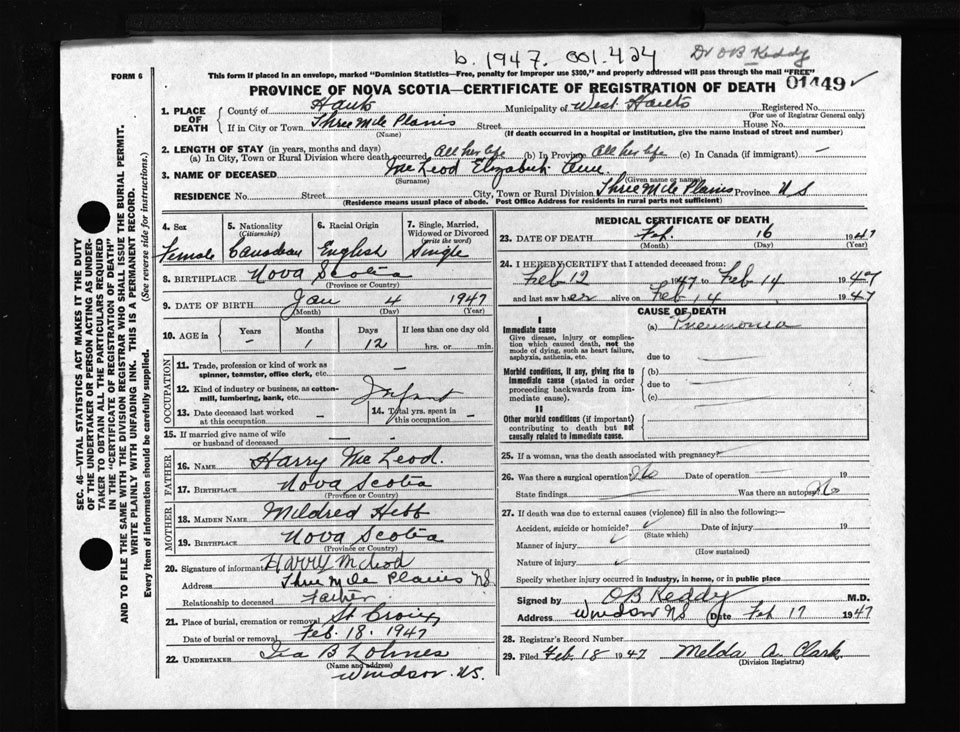 b. 1947. 001.424 Dr OB Keddy
FORM 6
This form if placed in an envelope, marked "Dominion Statistics—Free, penalty for improper use $300," and properly addressed will pass through the mail "FREE"
PROVINCE OF NOVA SCOTIA—CERTIFICATE OF REGISTRATION OF DEATH 01449
1. PLACE OF DEATH County of Hants Municipality of West Hants Registered No.
(For use of Registrar General only)
If in City or Town Three Mile Plains Street House No.
(Name) (If death occurred in a hospital or institution, give the name instead of street and number)
2. LENGTH OF STAY (in years, months and days)
(a) In City, Town or Rural Division where death occurred All her life (b) In Province All her life (c) In Canada (if immigrant) —
3. NAME OF DECEASED McLeod Elizabeth Anne
(Surname) (Given name or names)
RESIDENCE No. Street City, Town or Rural Division Three Mile Plains Province NS
(Residence means usual place of abode. Post Office Address for residents in rural parts not sufficient)
4. Sex 5. Nationality (Citizenship) 6. Racial Origin 7. Single, Married, Widowed or Divorced (write the word)
Female Canadian English Single
8. BIRTHPLACE Nova Scotia
(Province or Country)
9. DATE OF BIRTH Jan 4 1947
(Month) (Day) (Year)
10. AGE in Years Months Days If less than one day old
– 1 12 hrs. or min.
OCCUPATION
11. Trade, profession or kind of work as spinner, teamster, office clerk, etc. —
12. Kind of industry or business, as cotton-mill, lumbering, bank, etc. Infant
13. Date deceased last worked at this occupation – 14. Total yrs. spent in this occupation –
15. If married give name of wife or husband of deceased — —
FATHER
16. NAME Harry McLeod.
17. BIRTHPLACE Nova Scotia
(Province or Country)
MOTHER
18. MAIDEN NAME Mildred Hebb
19. BIRTHPLACE Nova Scotia
(Province or Country)
20. Signature of informant Harry McLeod
Address Three Mile Plains NS.
Relationship to deceased Father
21. Place of burial, cremation or removal St Croix
Date of burial or removal Feb. 18. 1947
22. UNDERTAKER Ira B Lohnes
(Name and address)
Windsor. NS.
MEDICAL CERTIFICATE OF DEATH
23. DATE OF DEATH Feb. 16 1947
(Month) (Day) (Year)
24. I HEREBY CERTIFY that I attended deceased from:
Feb 12 1947 to Feb 14 1947
and last saw her alive on Feb 14 1947
CAUSE OF DEATH
I
Immediate cause (a) Pneumonia
Give disease, injury or complication which caused death, not the mode of dying, such as heart failure, asphyxia, asthenia, etc.
due to
Morbid conditions, if any, giving rise to immediate cause (stated in order proceeding backwards from immediate cause).
(b)
due to
(c)
II
Other morbid conditions (if important) contributing to death but not causally related to immediate cause.
25. If a woman, was the death associated with pregnancy?
26. Was there a surgical operation No Date of operation 19
State findings Was there an autopsy No
27. If death was due to external causes (violence) fill in also the following:—
Accident, suicide or homicide? Date of injury 19
(State which)
Manner of injury
(How sustained)
Nature of injury
Specify whether injury occurred in industry, in home, or in public place
Signed by OB Keddy M.D.
Address Windsor NS Date Feb 17 1947
28. Registrar's Record Number
29. Filed Feb. 18 1947 Melda A. Clark.
(Division Registrar)
SEC. 46—VITAL STATISTICS ACT MAKES IT THE DUTY
OF THE UNDERTAKER OR PERSON ACTING AS UNDER-
TAKER TO OBTAIN ALL THE PARTICULARS REQUIRED
IN THE "CERTIFICATE OF REGISTRATION OF DEATH"
AND TO FILE THE SAME WITH THE DIVISION REGISTRAR WHO SHALL ISSUE THE BURIAL PERMIT.
WRITE PLAINLY WITH UNFADING INK. THIS IS A PERMANENT RECORD.
Every item of information should be carefully supplied. (See reverse side for instructions.)